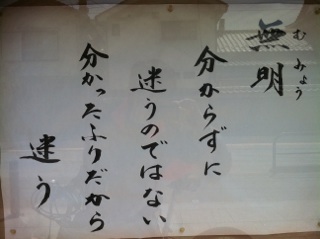 無明
むみょう
分からずに
迷うのではない
分かったふりだから
迷う